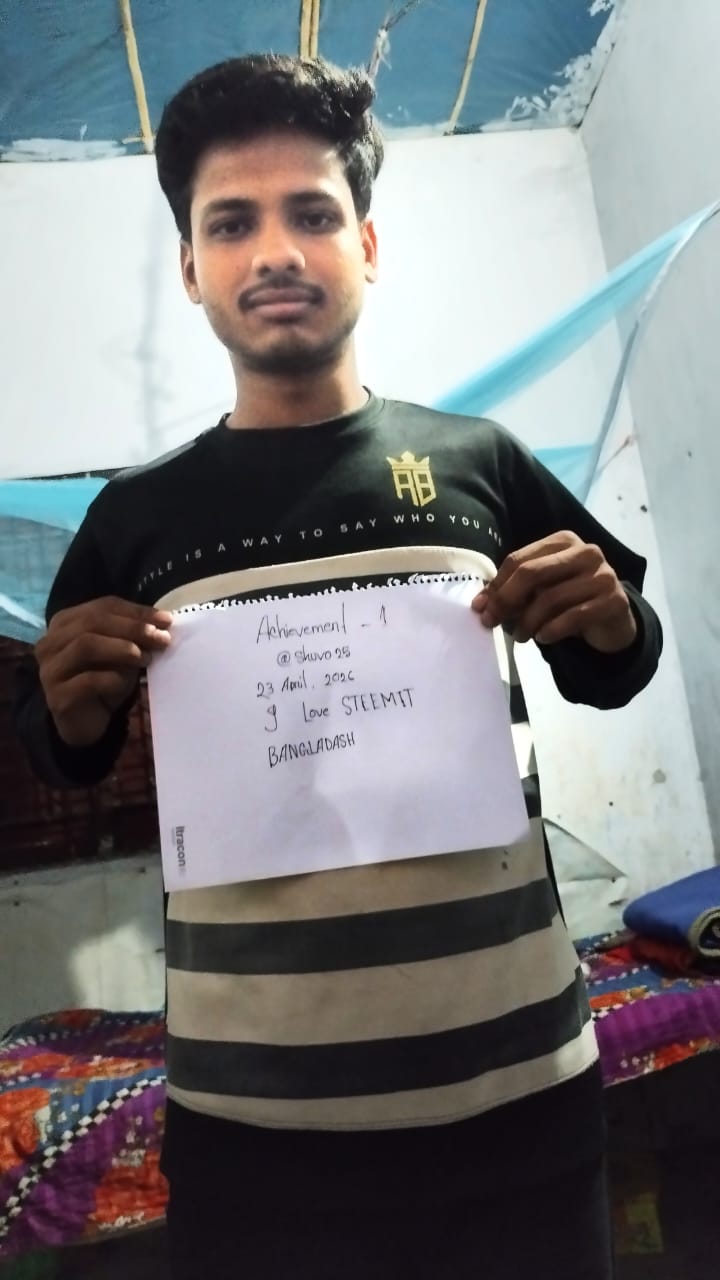 AB
STYLE IS A WAY TO SAY WHO YOU ARE
Achievement - 1
@Shuvo25
23 April, 2026
I Love STEEMIT
BANGLADASH
itracon